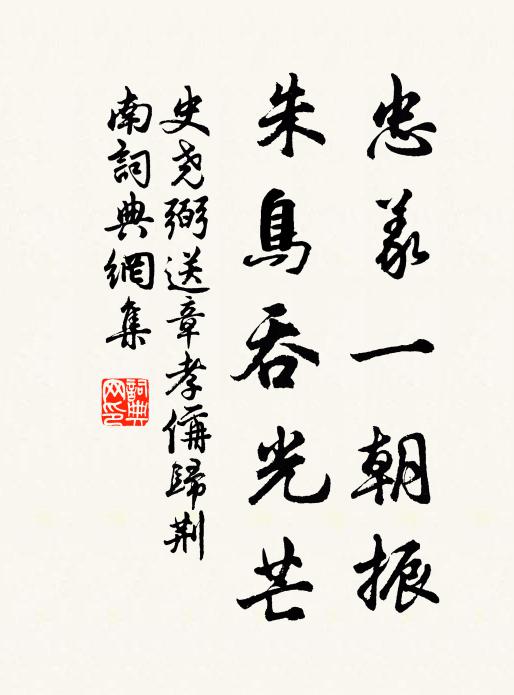 忠義一朝振
朱鳥吞光芒
史堯弼送章孝備歸荊
南詞典網集
詞典網印